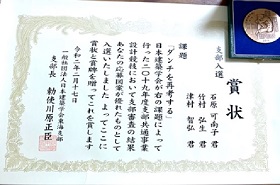 支部入選
賞状
石原可南子君
竹村弘生君
津村智弘君
課題
「ダンチを再考する」
日本建築学会が右の課題によって
行った二〇一九年度支部共通事業
設計競技において支部審査の結果
あなたの応募図案が優れたものとして
入選いたしました よってここに
賞状と賞牌を贈ってこれを賞します
令和二年二月十七日
一般社団法人日本建築学会東海支部
支部長 勅使川原正臣